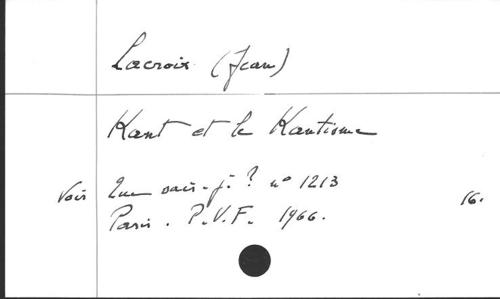 Lacroix (Jean)
Kant et le Kantisme
Voir Que sais-je ? n° 1213
Paris. P.U.F. 1966. 16.